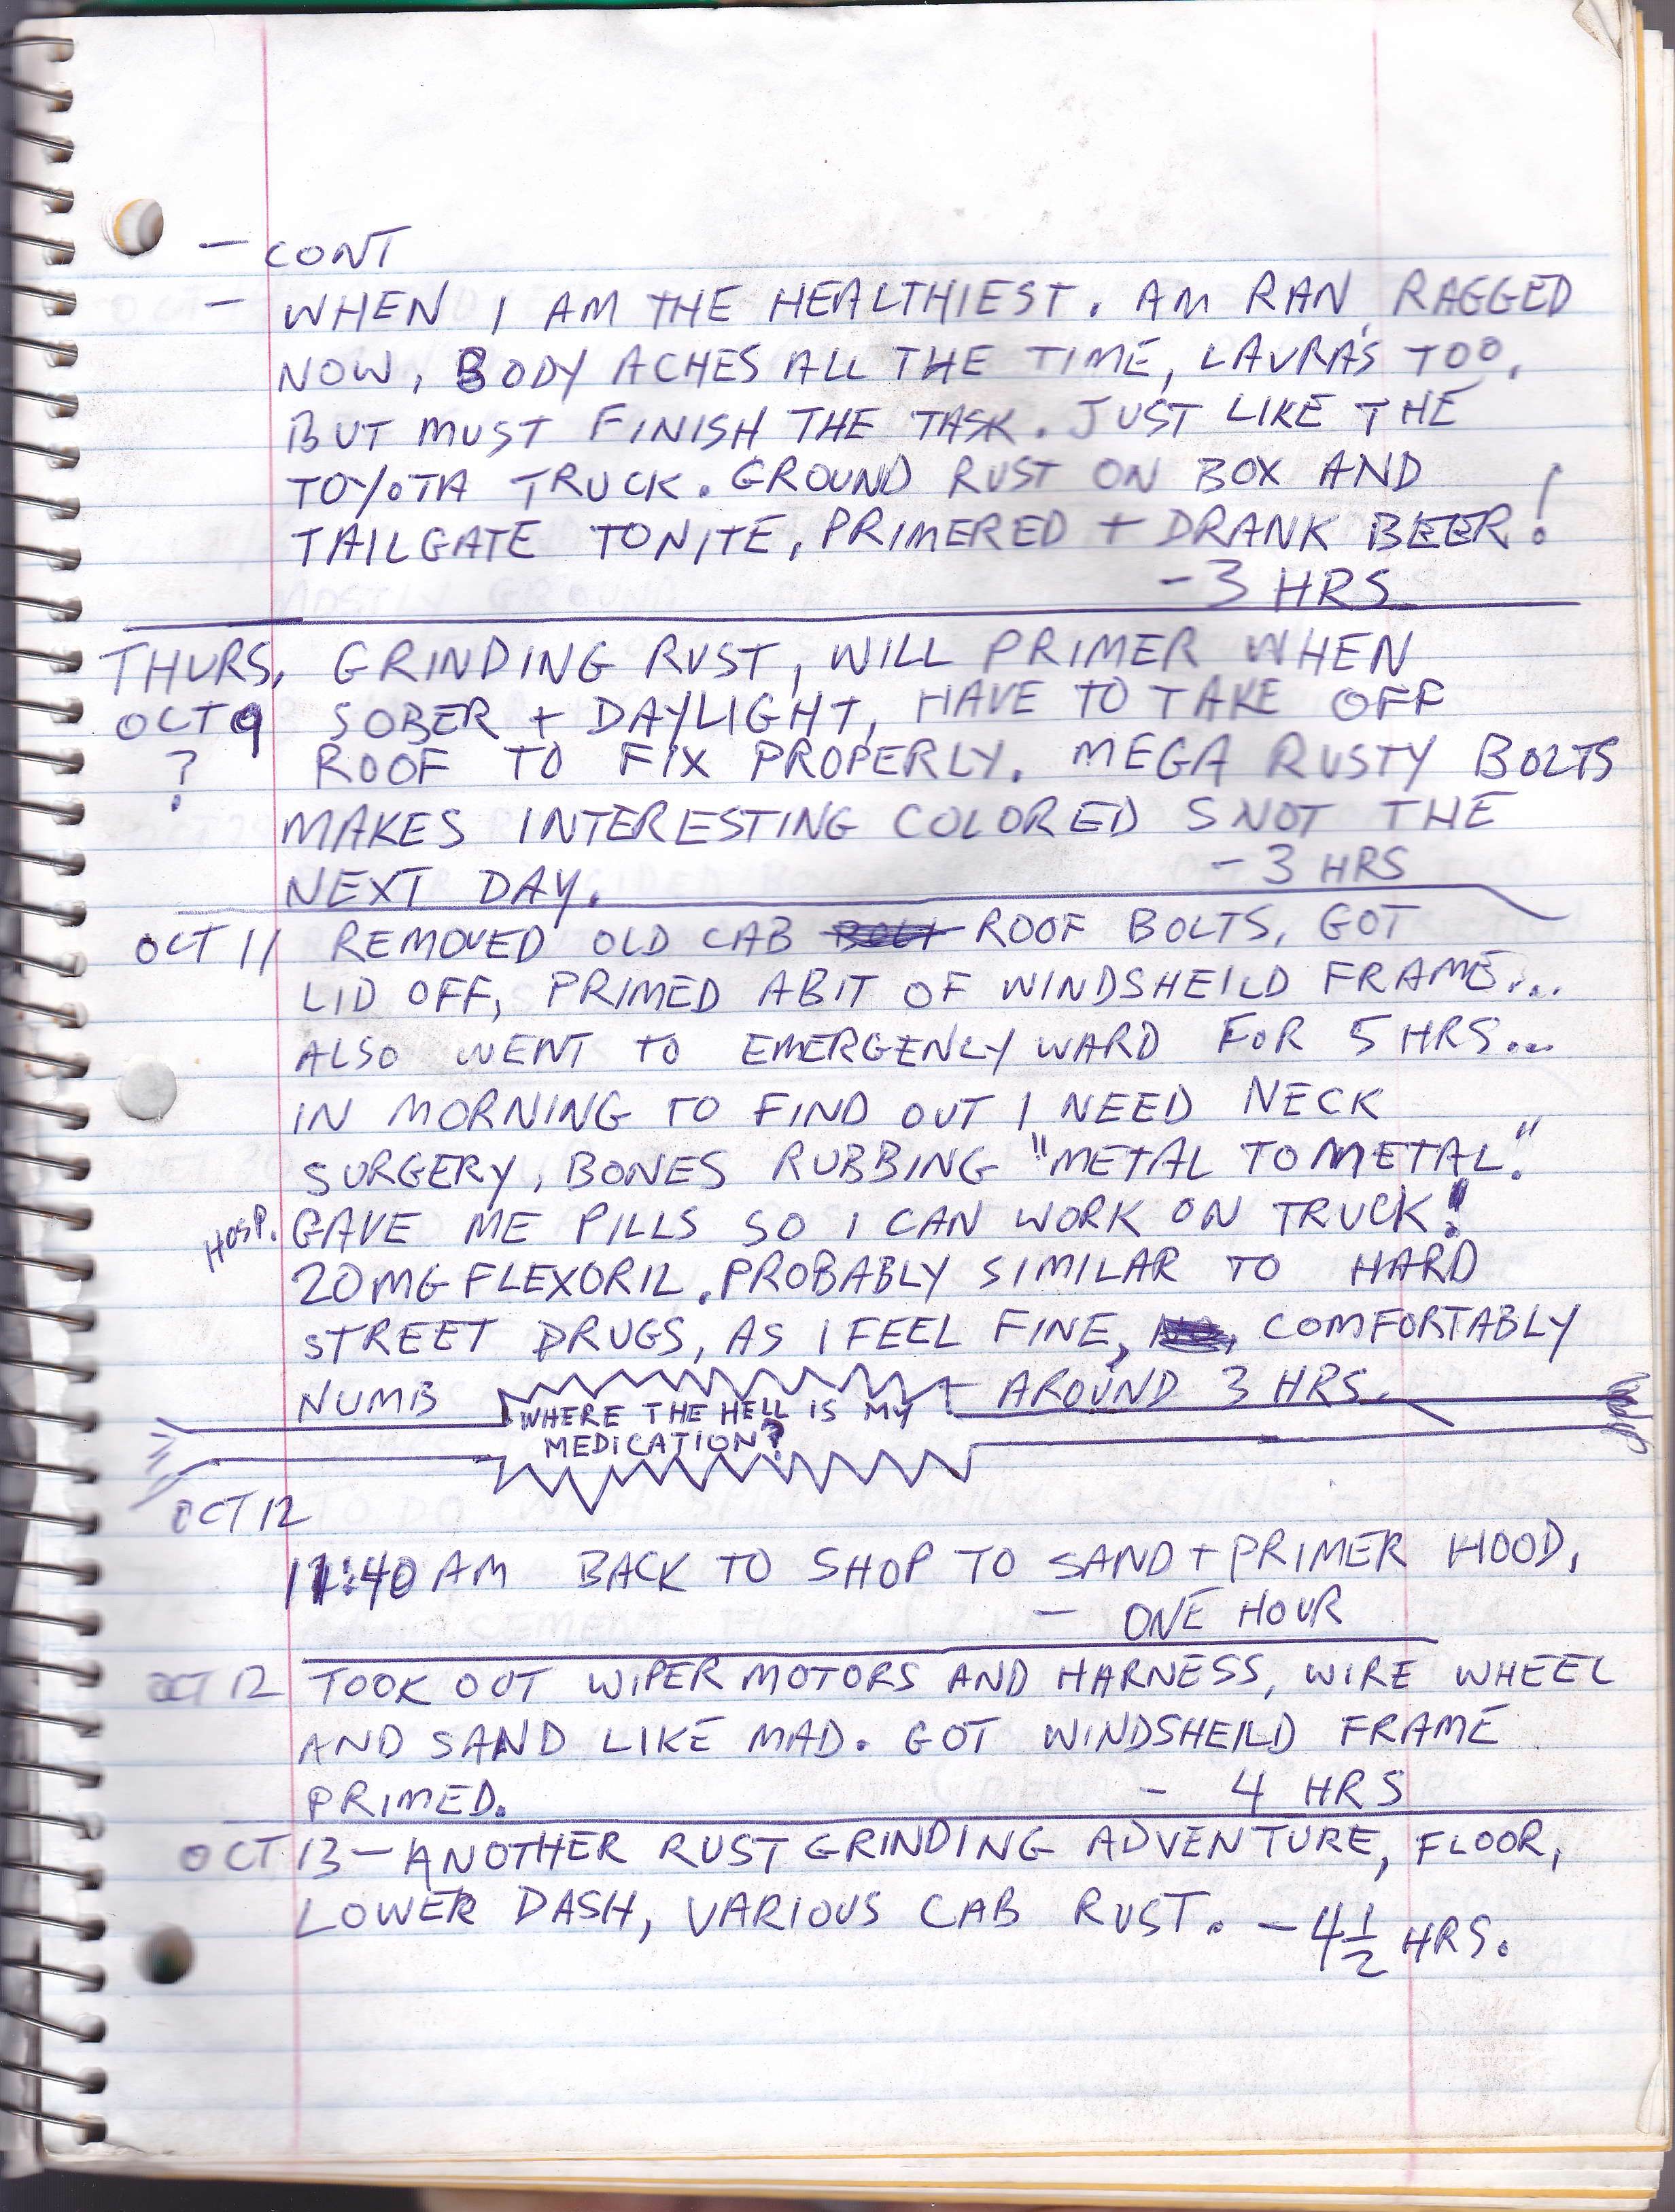 - CONT
- WHEN I AM THE HEALTHIEST. AM RAN RAGGED
NOW, BODY ACHES ALL THE TIME, LAURA'S TOO,
BUT MUST FINISH THE TASK. JUST LIKE THE
TOYOTA TRUCK. GROUND RUST ON BOX AND
TAILGATE TONITE, PRIMERED + DRANK BEER!
- 3 HRS
THURS, GRINDING RUST, WILL PRIMER WHEN
OCT 9 SOBER + DAYLIGHT, HAVE TO TAKE OFF
? ROOF TO FIX PROPERLY. MEGA RUSTY BOLTS
MAKES INTERESTING COLORED SNOT THE
NEXT DAY. - 3 HRS
OCT 11 REMOVED OLD CAB BOLT ROOF BOLTS, GOT
LID OFF, PRIMED ABIT OF WINDSHEILD FRAME...
ALSO WENT TO EMERGENCY WARD FOR 5 HRS...
IN MORNING TO FIND OUT I NEED NECK
SURGERY, BONES RUBBING "METAL TO METAL."
HOSP. GAVE ME PILLS SO I CAN WORK ON TRUCK!
20MG FLEXORIL. PROBABLY SIMILAR TO HARD
STREET DRUGS, AS I FEEL FINE, COMFORTABLY
NUMB - AROUND 3 HRS.
WHERE THE HELL IS MY
MEDICATION?
OCT 12
11:40 AM BACK TO SHOP TO SAND + PRIMER HOOD,
- ONE HOUR
OCT 12 TOOK OUT WIPER MOTORS AND HARNESS, WIRE WHEEL
AND SAND LIKE MAD. GOT WINDSHEILD FRAME
PRIMED. - 4 HRS
OCT 13 - ANOTHER RUST GRINDING ADVENTURE, FLOOR,
LOWER DASH, VARIOUS CAB RUST. - 4 1/2 HRS.